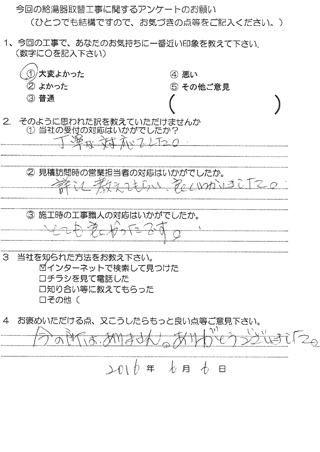 今回の給湯器取替工事に関するアンケートのお願い
（ひとつでも結構ですので、お気づきの点等をご記入ください。）
1、今回の工事で、あなたのお気持ちに一番近い印象を教えて下さい。
（数字に〇を記入下さい）
①大変よかった
②よかった
③普通
④悪い
⑤その他ご意見
（　　　）
2．そのように思われた訳を教えていただけませんか
①当社の受付の対応はいかがでしたか？
丁寧な対応でした。
②見積訪問時の営業担当者の対応はいかがでしたか。
詳しく教えてもらい、
ました。
③施工時の工事職人の対応はいかがでしたか。
とても良かったです。
3　当社を知られた方法をお教え下さい。
☑インターネットで検索して見つけた
□チラシを見て電話した
□知り合い等に教えてもらった
□その他（
4　お褒めいただける点、又こうしたらもっと良い点等ご意見下さい。
今の所はありません。ありがとうございました。
2016年　6月　6日